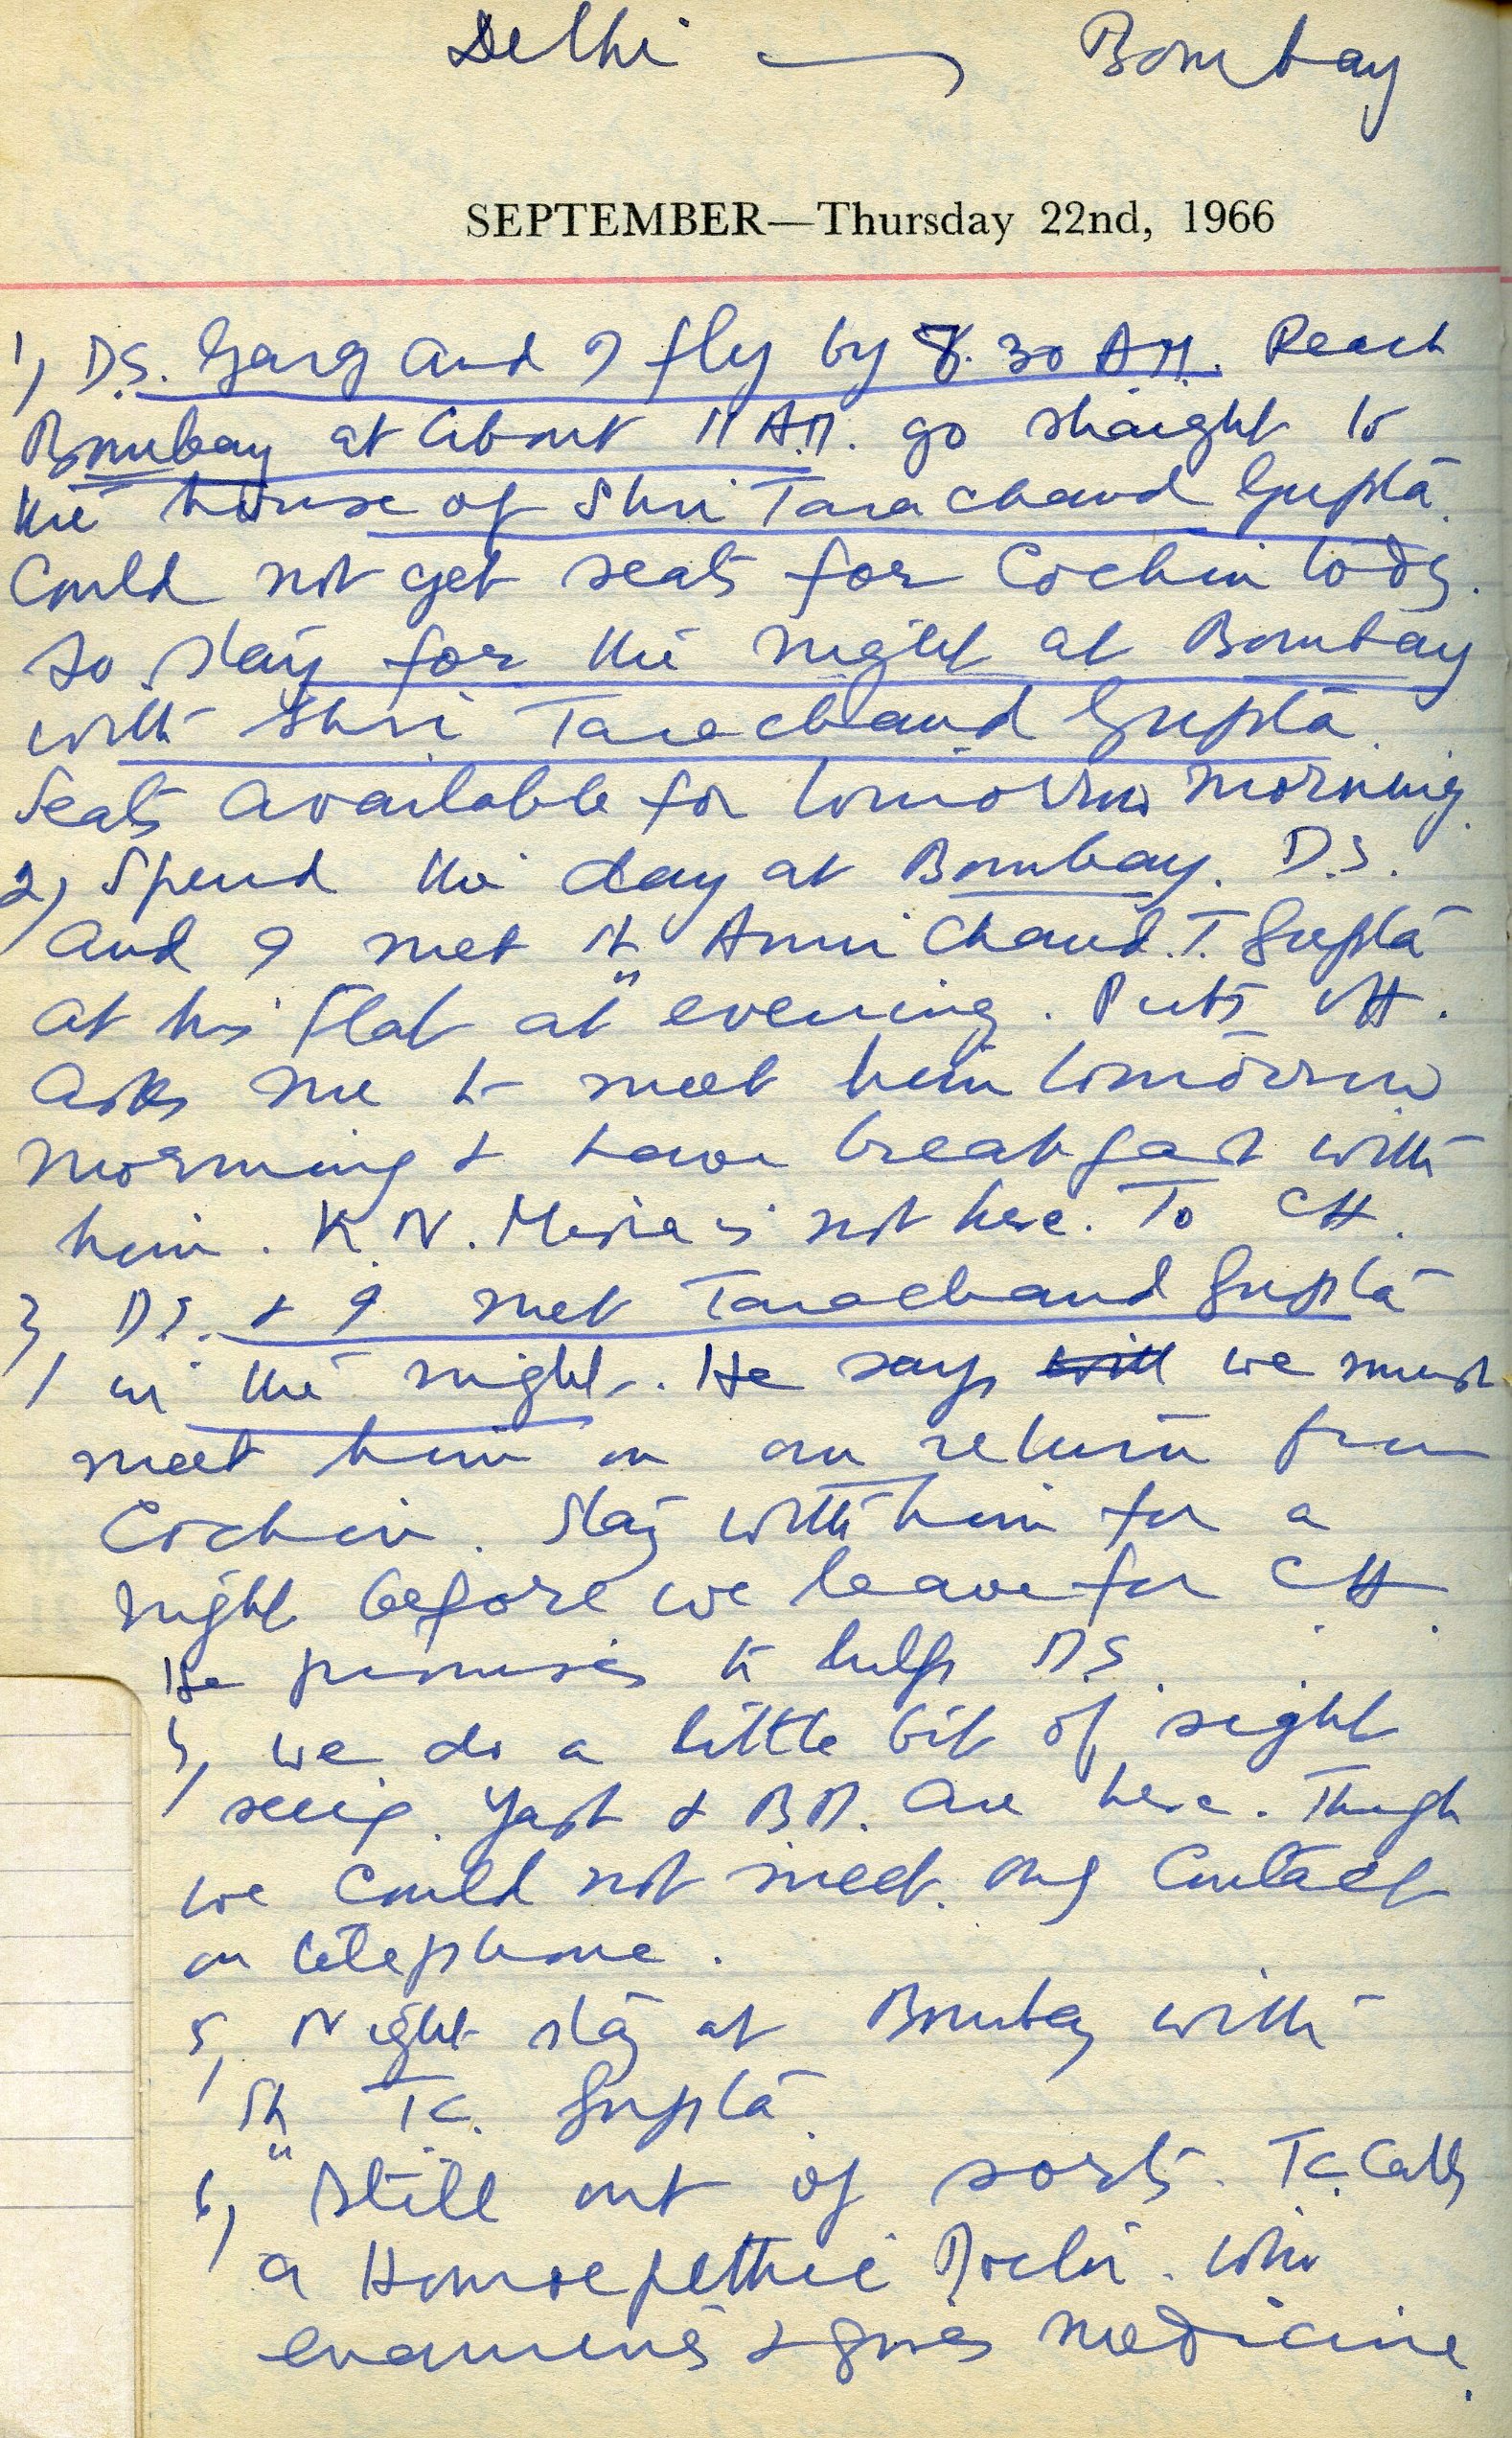 Delhi — Bombay
SEPTEMBER—Thursday 22nd, 1966
1, D.S. Garg and I fly by 8.30 A.M. Reach
Bombay at about 11 A.M. go straight to
the house of Shri Tara Chand Gupta.
Could not get seats for Cochin today.
So stay for the night at Bombay
with Shri Tarachand Gupta.
Seats available for tomorrow morning.
2, Spend the day at Bombay. D.S.
and I met Sh Amin Chand. T. Gupta
at his flat at evening. Puts off.
Asks me to meet him tomorrow
morning & have breakfast with
him. K.N. is not here. To CH.
3, D.S. & I met Tarachand Gupta
in the night. He says will we must
meet him on our return from
Cochin. Stay with him for a
night before we leave for CH.
He promises to help D.S.
4, we do a little bit of sight
seeing. Yash & B.M. are here. Though
we could not meet. only Contact
on telephone.
5, Night stay at Bombay with
Sh T.C. Gupta
6, Still out of sorts. T.C. Calls
a Homoepethic Doctor. who
examines & gives medicine.